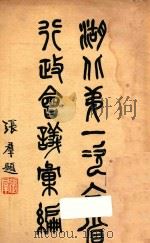 湖北第一次全省
行政會議彙編
張羣題